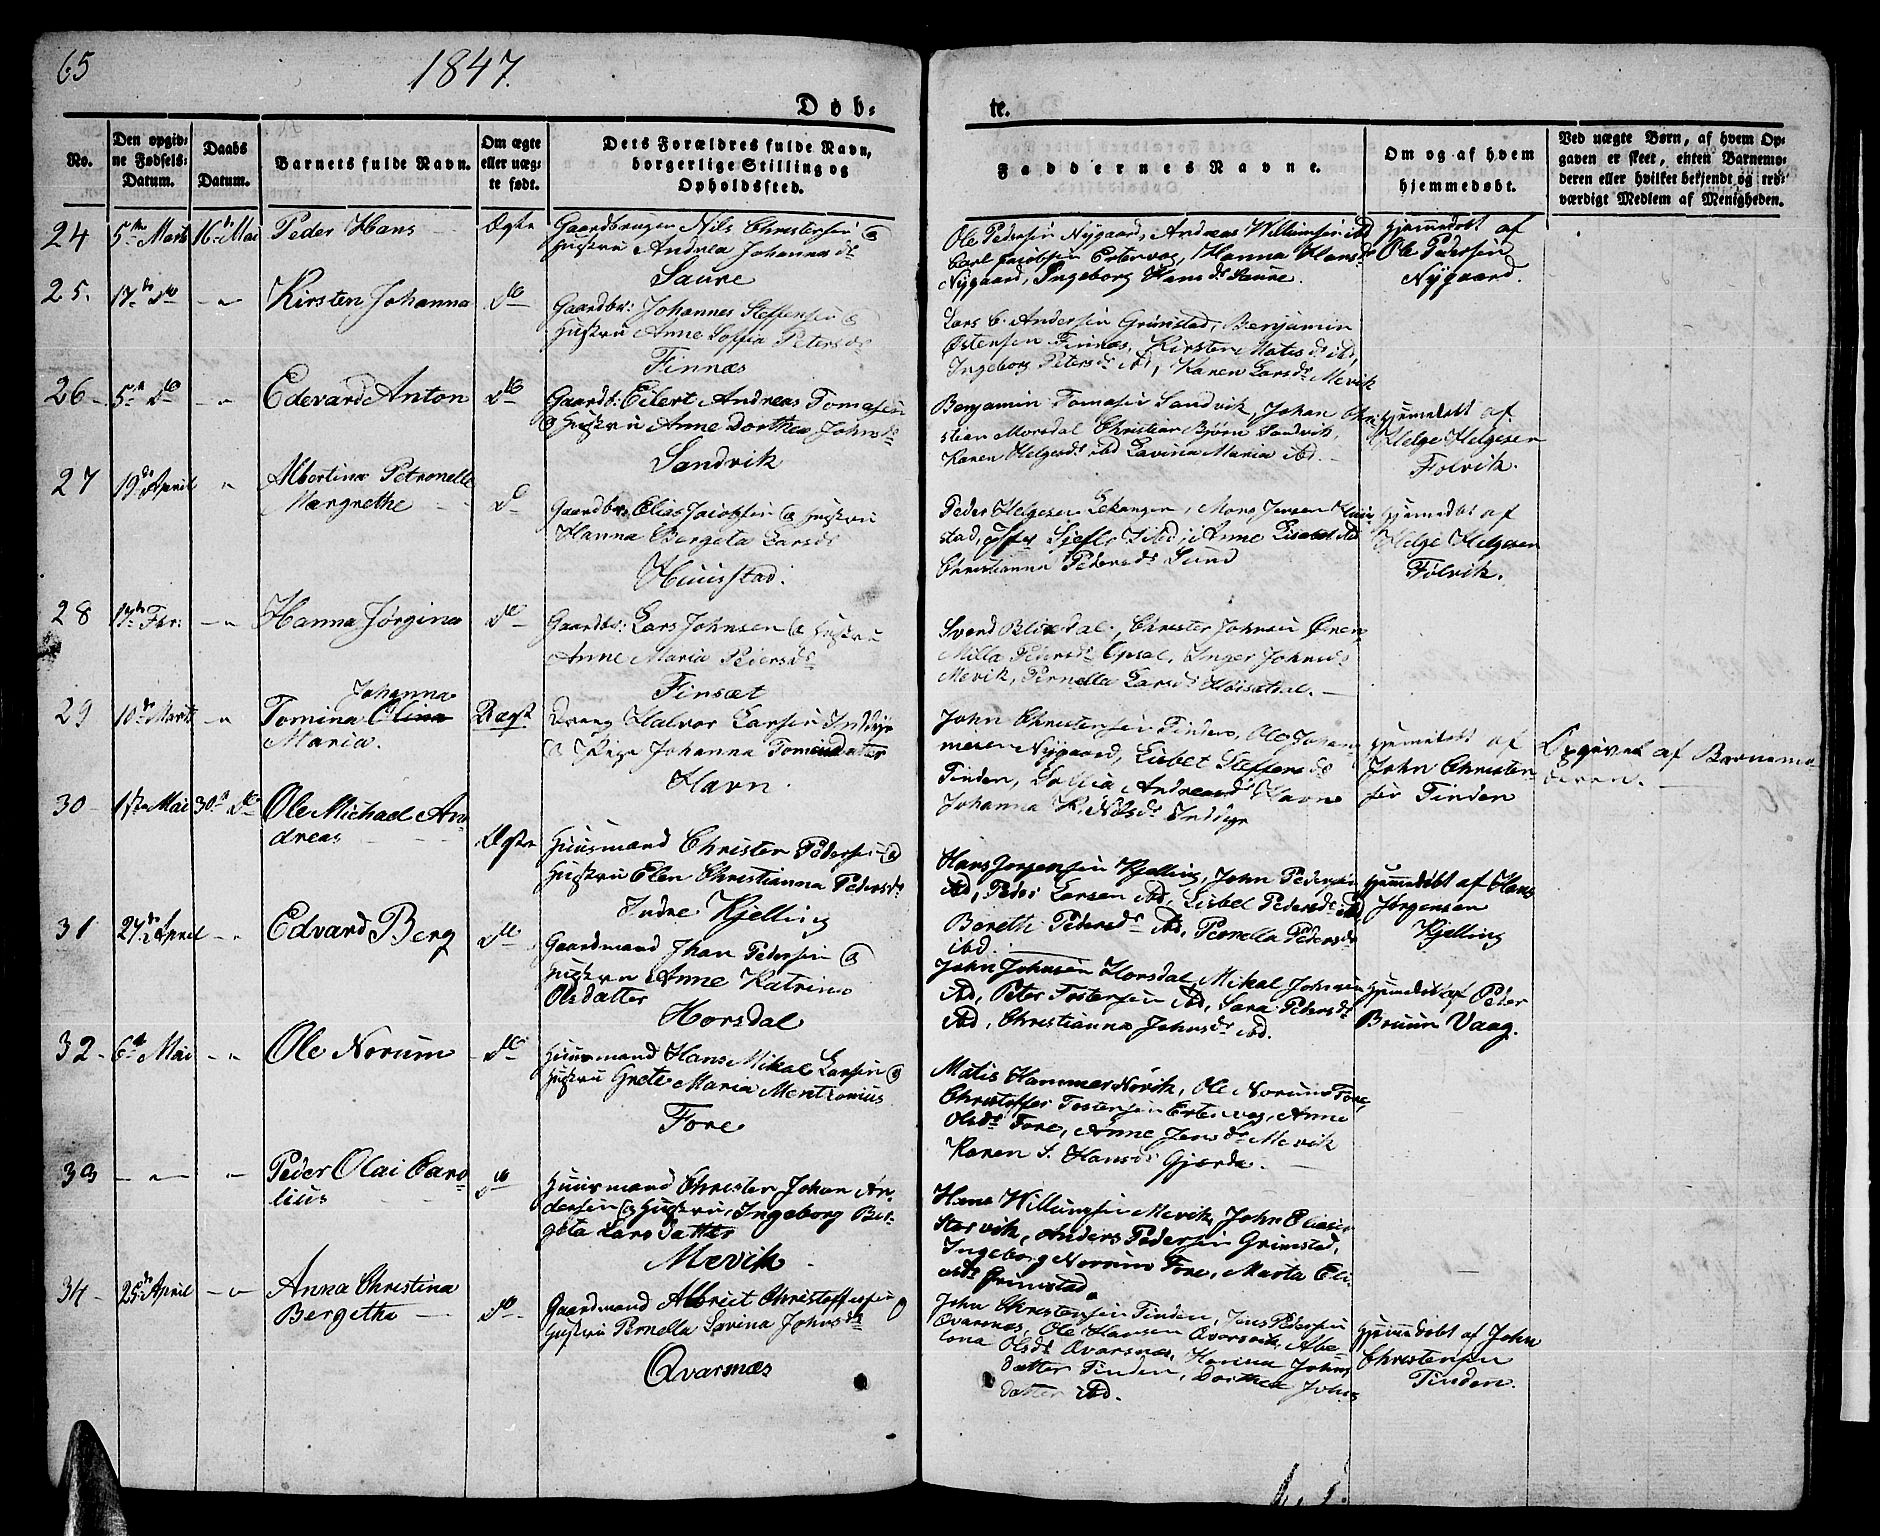 65
1847.
Døb-
te.
No.
Den opgiv-
ne Fødsels-
Datum.
Daabs
Datum.
Barnets fulde Navn.
Om ægte
eller uæg-
te født.
Dets Forældres fulde Navn,
borgerlige Stilling og
Opholdssted.
Faddernes Navne.
Om og af hvem
hjemmedøbt.
Ved uægte Børn, af hvem Op-
gaven er skeet, enten Barnemo-
deren eller hvilket bekjendt og tro-
værdigt Medlem af Menigheden.
24 5te Marts 16de Mai Peder Hans Ægte
Gaardbruger Nils Christersen &
Hustru Andrea Johanna Hs
Saure
Ole Pedersen Nygaard, Andreas Willumsen ibd
Carl Jacobsen Ertenvog, Hanna Hansd
Nygaard, Ingeborg Hansd Saure.
Hjemmedøbt af
Ole Pedersen
Nygaard.
25. 17de Do - " Kirsten Johanna Do
Gaardbr: Johannes Steffensen &
Hustru Anne Soffia Petersd
Finnæs
Lars C. Andersen Grimstad, Benjamin
Østensen Finnæs, Kirsten Matisd ibd,
Ingeborg Petersd ibd, Karen Larsd Mevik
26 5te Do - " Edevard Anton Do
Gaardb: Eilert Andreas Tomasen
& Hustru Anne Dorthea Johnsd
Sandvik
Benjamin Tomasen Sandvik, Johan Chri-
stian Morsdal Christian Bjørn Sandvik,
Karen Helgesd ibd Lavina Maria ibd.
Hjemmedøbt af
Helge Helgesen
Folvik.
27 19de April " Albertina Petronelle
Margrethe Do
Gaardbr: Elias Jacobsen & Hustru
Hanna Bergeta Larsd
Huusstad.
Peder Helgesen Lekanger, Mons Jensen Huus-
stad, Lisabet ibd
Christianna Pedersd Sund
Hjemmedøbt af
Helge Helgesen
Følvik.
28 17de Fbr: - " Hanna Jørgina Do
Gaardbr: Lars Johnsen & Hustru
Anne Maria Peiersd
Finsæt
Svend Blixdal, Christer Johnsen Ønen
Milla Petersd Opsal, Inger Johnsd
Mevik, Pernella Larsd Høisathal.
29 10de Marts - " Johanna
Tomina Olina
Maria. Uægt
Dreng Halvor Larsen Inddyr
& Pige Johanna Tomasdatter
Havn.
John Christensen Tinden, Ole Johan
meier Nygaard, Lisbet Steffensd
Tinden, Soffia Andreasd Havn
Johanna K. Nilsd Inddyr
Hjemmedøbt af
John Christen-
sen Tinden
Opgivet af Barnemo-
deren.
30 1ste Mai 30te Do Ole Michael An-
dreas Ægte
Huusmand Christen Pedersen &
Hustru Elen Christianna Pedersd
Indre Kjelling
Hans Jørgensen Kjelling, John Pedersen
ibd, Peder Larsen ibd, Lisbet Pedersd ibd,
Bereth Pedersd ibd, Pernella Pedersd
ibd.
Hjemmedøbt af Hans
Jørgensen
Kjelling
31 27de April - " Edvard Berg Do
Gaardmand Jhan Pedersen &
Hustru Anne Katrina
Olsdatter
Horsdal
John Johnsen Horsdal, Mikal Johnsen
ibd, Peter Tostensen ibd, Sara Petersd
ibd, Christianna Johnsd ibd.
Hjemmedøbt af Peder
Bruun Vaag.
32 6te Mai - " Ole Norum Do
Huusmand Hans Mikal Larsen &
Hustru Grete Maria Mentzonius
Fore
Matis Hammer Nøvik, Ole Norum Fore,
Christoffer Tostensen Ertenvog, Anne
Olsd Fore, Anne Jensd Mevik
Karen S. Hansd Gjærde.
33 - " - " Peder Olai Caro-
lius Do
Huusmand Christen Johan An-
dersen & Hustru, Ingeborg Ber-
geta Larsdatter
Mevik
Hans Willumsen Mevik, John Eliasen
Storvik, Anders Pedersen Grimstad,
Ingeborg Norum Fore, Marta Eli-
asd Grimstad.
34 25de April - " Anna Christina
Bergetha Do
Gaardmand Albriet Christoffersen &
Hustru Pernella Lavina Johnsd
Qvarsnæs
John Christensen Tinden, Jens Pedersen
Qvarsnæs, Ole Hansen Qvarsvik, Abe-
lona Olsd Qvarsnæs, Harina Johns-
datter Tinden, Dorthea Johns-
datter ibd.
Hjemmedøbt af John
Christensen
Tinden.